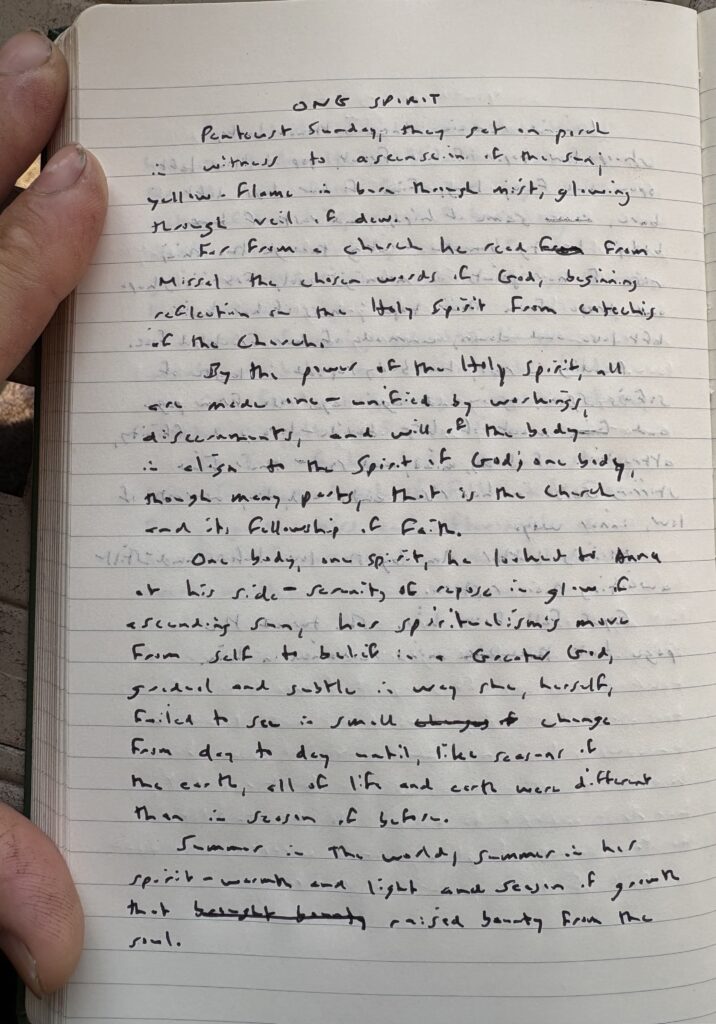 ONE SPIRIT
Pentecost Sunday, they sat on porch
in witness to ascension of the sun;
yellow-flame in burn through mist, glowing
through veil of dew.
Far from a church he read from
Missal the chosen words of God, beginning
reflection on the Holy Spirit from catechis
of the Church.
By the power of the Holy Spirit, all
are made one - unified by workings,
discernments, and will of the body
in align to the Spirit of God; one body,
though many parts, that is the Church
and its fellowship of faith.
One body, one spirit, he looked to Anna
at his side - serenity of repose in glow of
ascending sun, her spiritualism's move
from self to belief in a Greater God,
gradual and subtle in way she, herself,
failed to see in small change
from day to day until, like seasons of
the earth, all of life and earth were different
than in season of before.
Summer in the world, summer in her
spirit - warmth and light and season of growth
that raised beauty from the
soul.